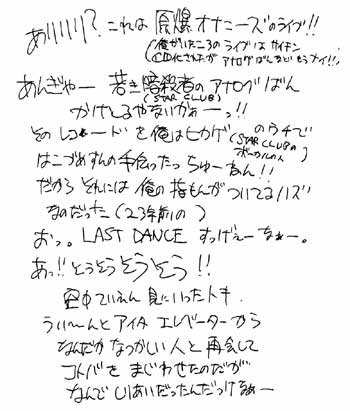 ありリリリ?これは原爆オナニーズのライブ!!
(俺がいたころのライブはサイテン
CD化されたがアナログばんなどもうナイ!!)
あんぎゃー 若き暗殺者のアナログばん
(STAR CLUB)
かけてるやないかぁーっ!!
そのレコードを俺はヒカゲ(STAR CLUBのボーカルの人)のウチで
はこづめすんの手伝ったっちゅーねん!!
だからそれには俺の指もんがついてるハズ
なのだった(23年前の)
おっ。LAST DANCE すっげぇーなぁー。
あっ!!とうとうそうそう!!
空中ていえん見にいったトキ
ういーんとアイタエレベーターから
なんだかなつかしい人と再会して
コトバをまじわせたのだが
なんでしりあいだったんだっけなぁー